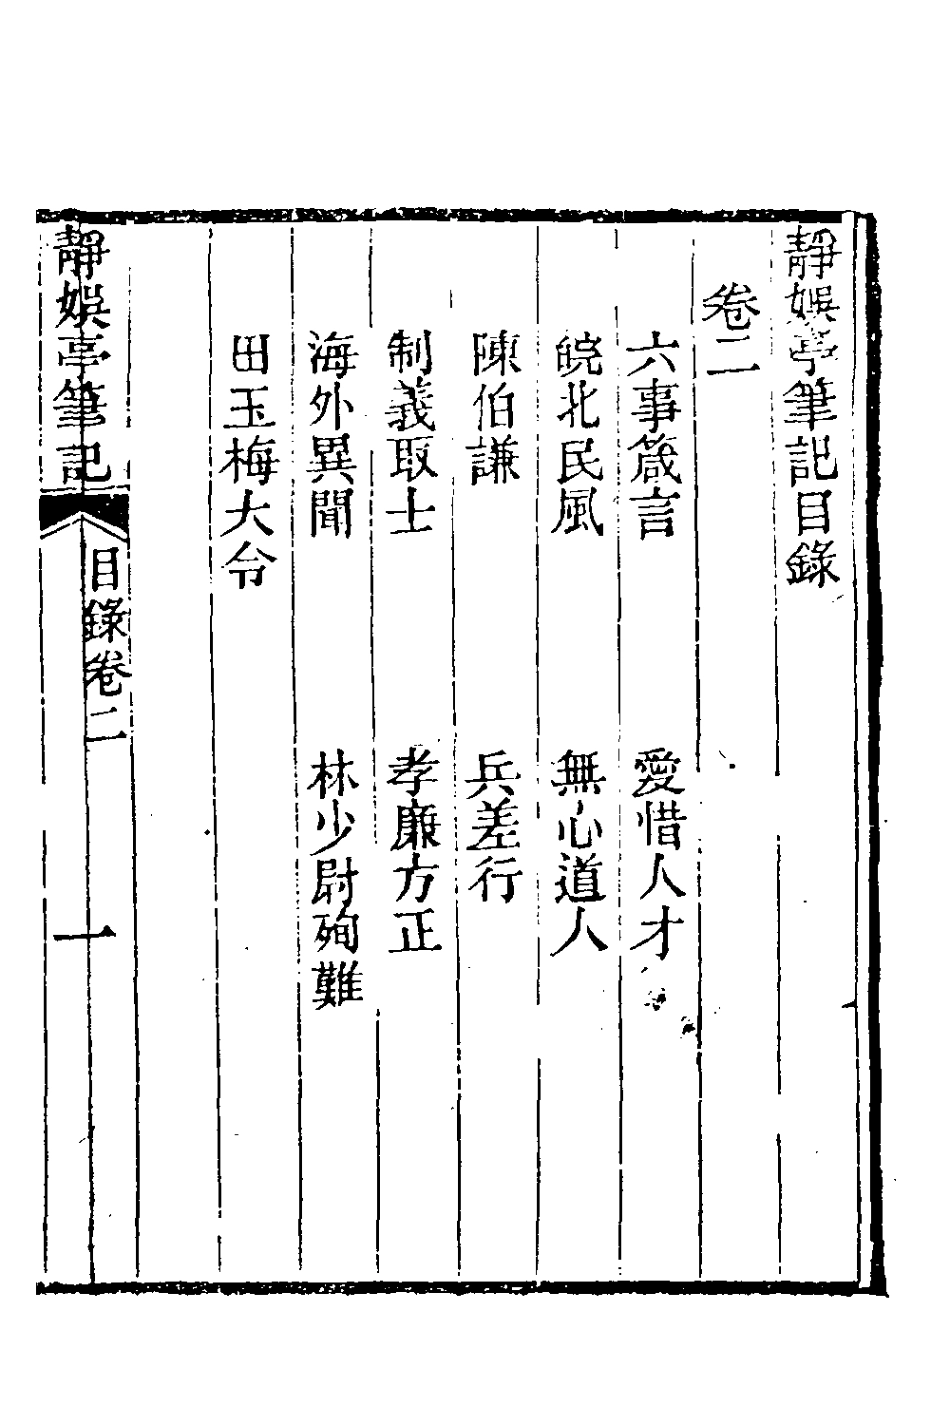 靜娛亭筆記目錄
卷二
六事箴言　愛惜人才
皖北民風　無心道人
陳伯謙　兵差行
制義取士　孝廉方正
海外異聞　林少尉殉難
田玉梅大令
靜娛亭筆記　目錄卷二　一